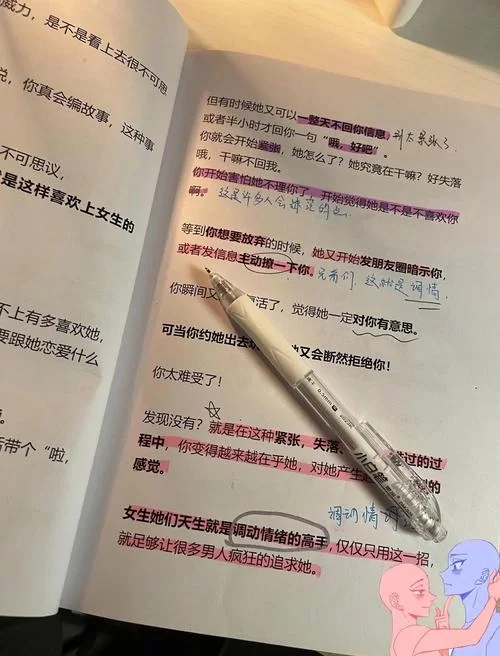 威力，是不是看上去很不可思
说，你真会编故事，这种事
不可思议，
是这样喜欢上女生的
不上有多喜欢她，
要跟她恋爱什么
带个“啦，
但有时候她又可以一整天不回你信息，
或者半小时才回你一句“哦，好吧”。
你就会开始紧张，她怎么了？她究竟在干嘛？好失落
哦，干嘛不回我。
你开始害怕她不理你了，开始觉得她是不是不喜欢你
了。这是许多人会
等到你想要放弃的时候，她又开始发朋友圈暗示你，
或者发信息主动撩一下你。兄弟们，这就是调情
你瞬间又 活了，觉得她一定对你有意思。
可当你约她出去 她又会断然拒绝你！
你太难受了！
发现没有？就是在这种紧张，失落、 过的过
程中，你变得越来越在乎她，对她产生 的
感觉。
调动情
女生她们天生就是调动情绪的高手，仅仅只用这一招，
就足够让很多男人疯狂的追求她。
0.5mm
小白笔